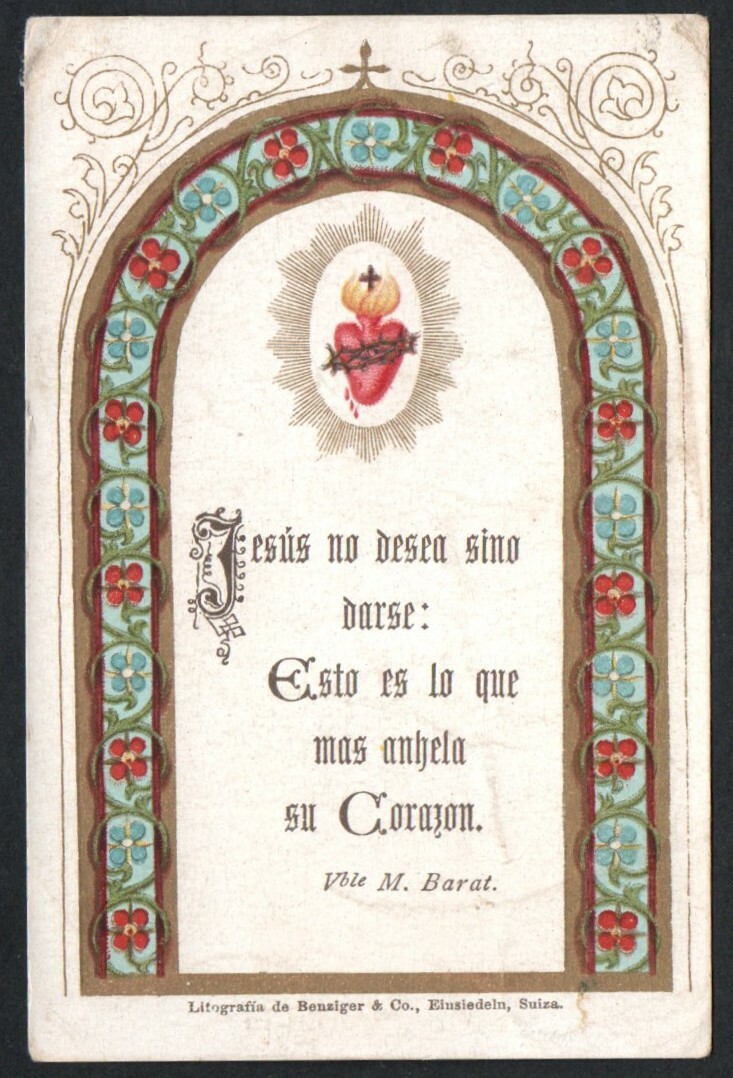 Jesús no desea sino
darse:
Esto es lo que
mas anhela
su Corazon.
Vble M. Barat.
Litografía de Benziger & Co., Einsiedeln, Suiza.